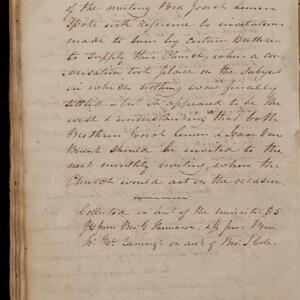 of the meeting Bro. Josiah
Spole with reference to invitations
made to him by certain Brethren
to supply this Church, when a con
versation took place on the Subject
in which nothing was finally
settled – but it appeared to be the
wish & understanding that both
Brethren & Isaac Van
should be invited to the
next monthly meeting, when the
Church would act on the occasion.
Collected on act. of the minister $5
from Bro. G Thomason, from Bro.
on act. of Bro. J. Cole.